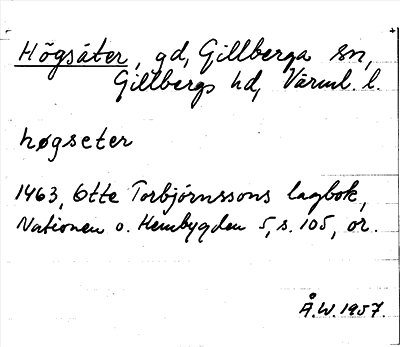 Högsäter, gd, Gillberga sn,
Gillbergs hd, Värml. l.
høgseter
1463, Otte Torbjörnssons lagbok,
Nationen o. Hembygden 5, s. 105, or.
Å.W. 1957.